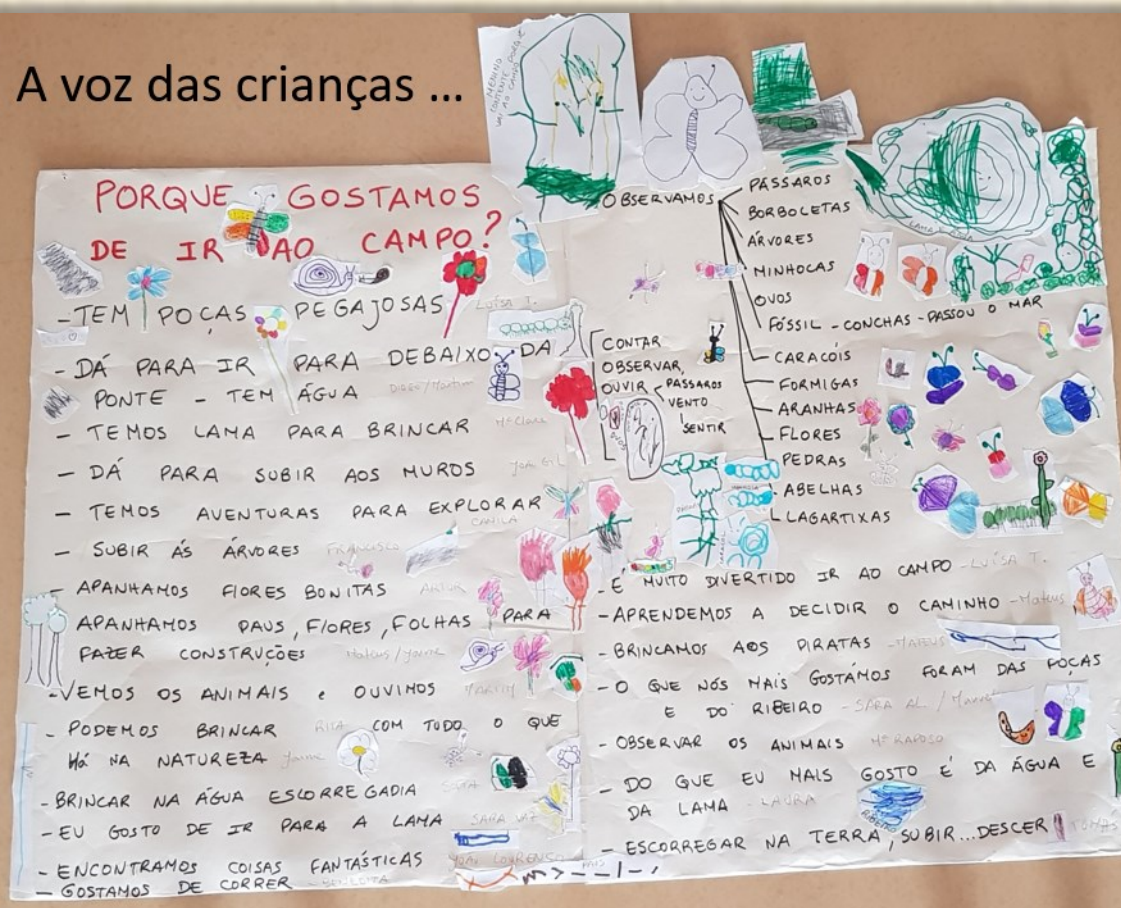 A voz das crianças ...
MENINO
CONTENTE PORQUE
VAI AO CAMPO
PORQUE GOSTAMOS
DE IR AO CAMPO?
- TEM POÇAS PEGAJOSAS LUÍSA T.
- DÁ PARA IR PARA DEBAIXO DA
PONTE - TEM ÁGUA
- TEMOS LAMA PARA BRINCAR Mª Clara
- DÁ PARA SUBIR AOS MUROS
- TEMOS AVENTURAS PARA EXPLORAR
CAMILA
- SUBIR ÁS ÁRVORES FRANCISCO
- APANHAMOS FLORES BONITAS ARTUR
APANHAMOS PAUS, FLORES, FOLHAS PARA
FAZER CONSTRUÇÕES Mateus / Jaime
- VEMOS OS ANIMAIS e OUVIMOS MARTIM
- PODEMOS BRINCAR RITA COM TUDO O QUE
HÁ NA NATUREZA Jaime
- BRINCAR NA ÁGUA ESCORREGADIA
- EU GOSTO DE IR PARA A LAMA SARA VAZ
- ENCONTRAMOS COISAS FANTÁSTICAS JOÃO LOURENÇO
- GOSTAMOS DE CORRER - BENEDITA
OBSERVAMOS
PÁSSAROS
BORBOLETAS
ÁRVORES
MINHOCAS
OVOS
FÓSSIL - CONCHAS - PASSOU O MAR
CARACÓIS
FORMIGAS
ARANHAS
FLORES
PEDRAS
ABELHAS
LAGARTIXAS
CONTAR
OBSERVAR,
OUVIR PÁSSAROS
VENTO
SENTIR
OVOS
- É MUITO DIVERTIDO IR AO CAMPO - LUÍSA T.
- APRENDEMOS A DECIDIR O CAMINHO - Mateus
- BRINCAMOS AOS PIRATAS - MATEUS
- O QUE NÓS MAIS GOSTÁMOS FORAM DAS POÇAS
E DO RIBEIRO - SARA AL. /
- OBSERVAR OS ANIMAIS Mª RAPOSO
- DO QUE EU MAIS GOSTO É DA ÁGUA E
DA LAMA - LAURA
RIBEIRO
- ESCORREGAR NA TERRA, SUBIR...DESCER TOMÁS